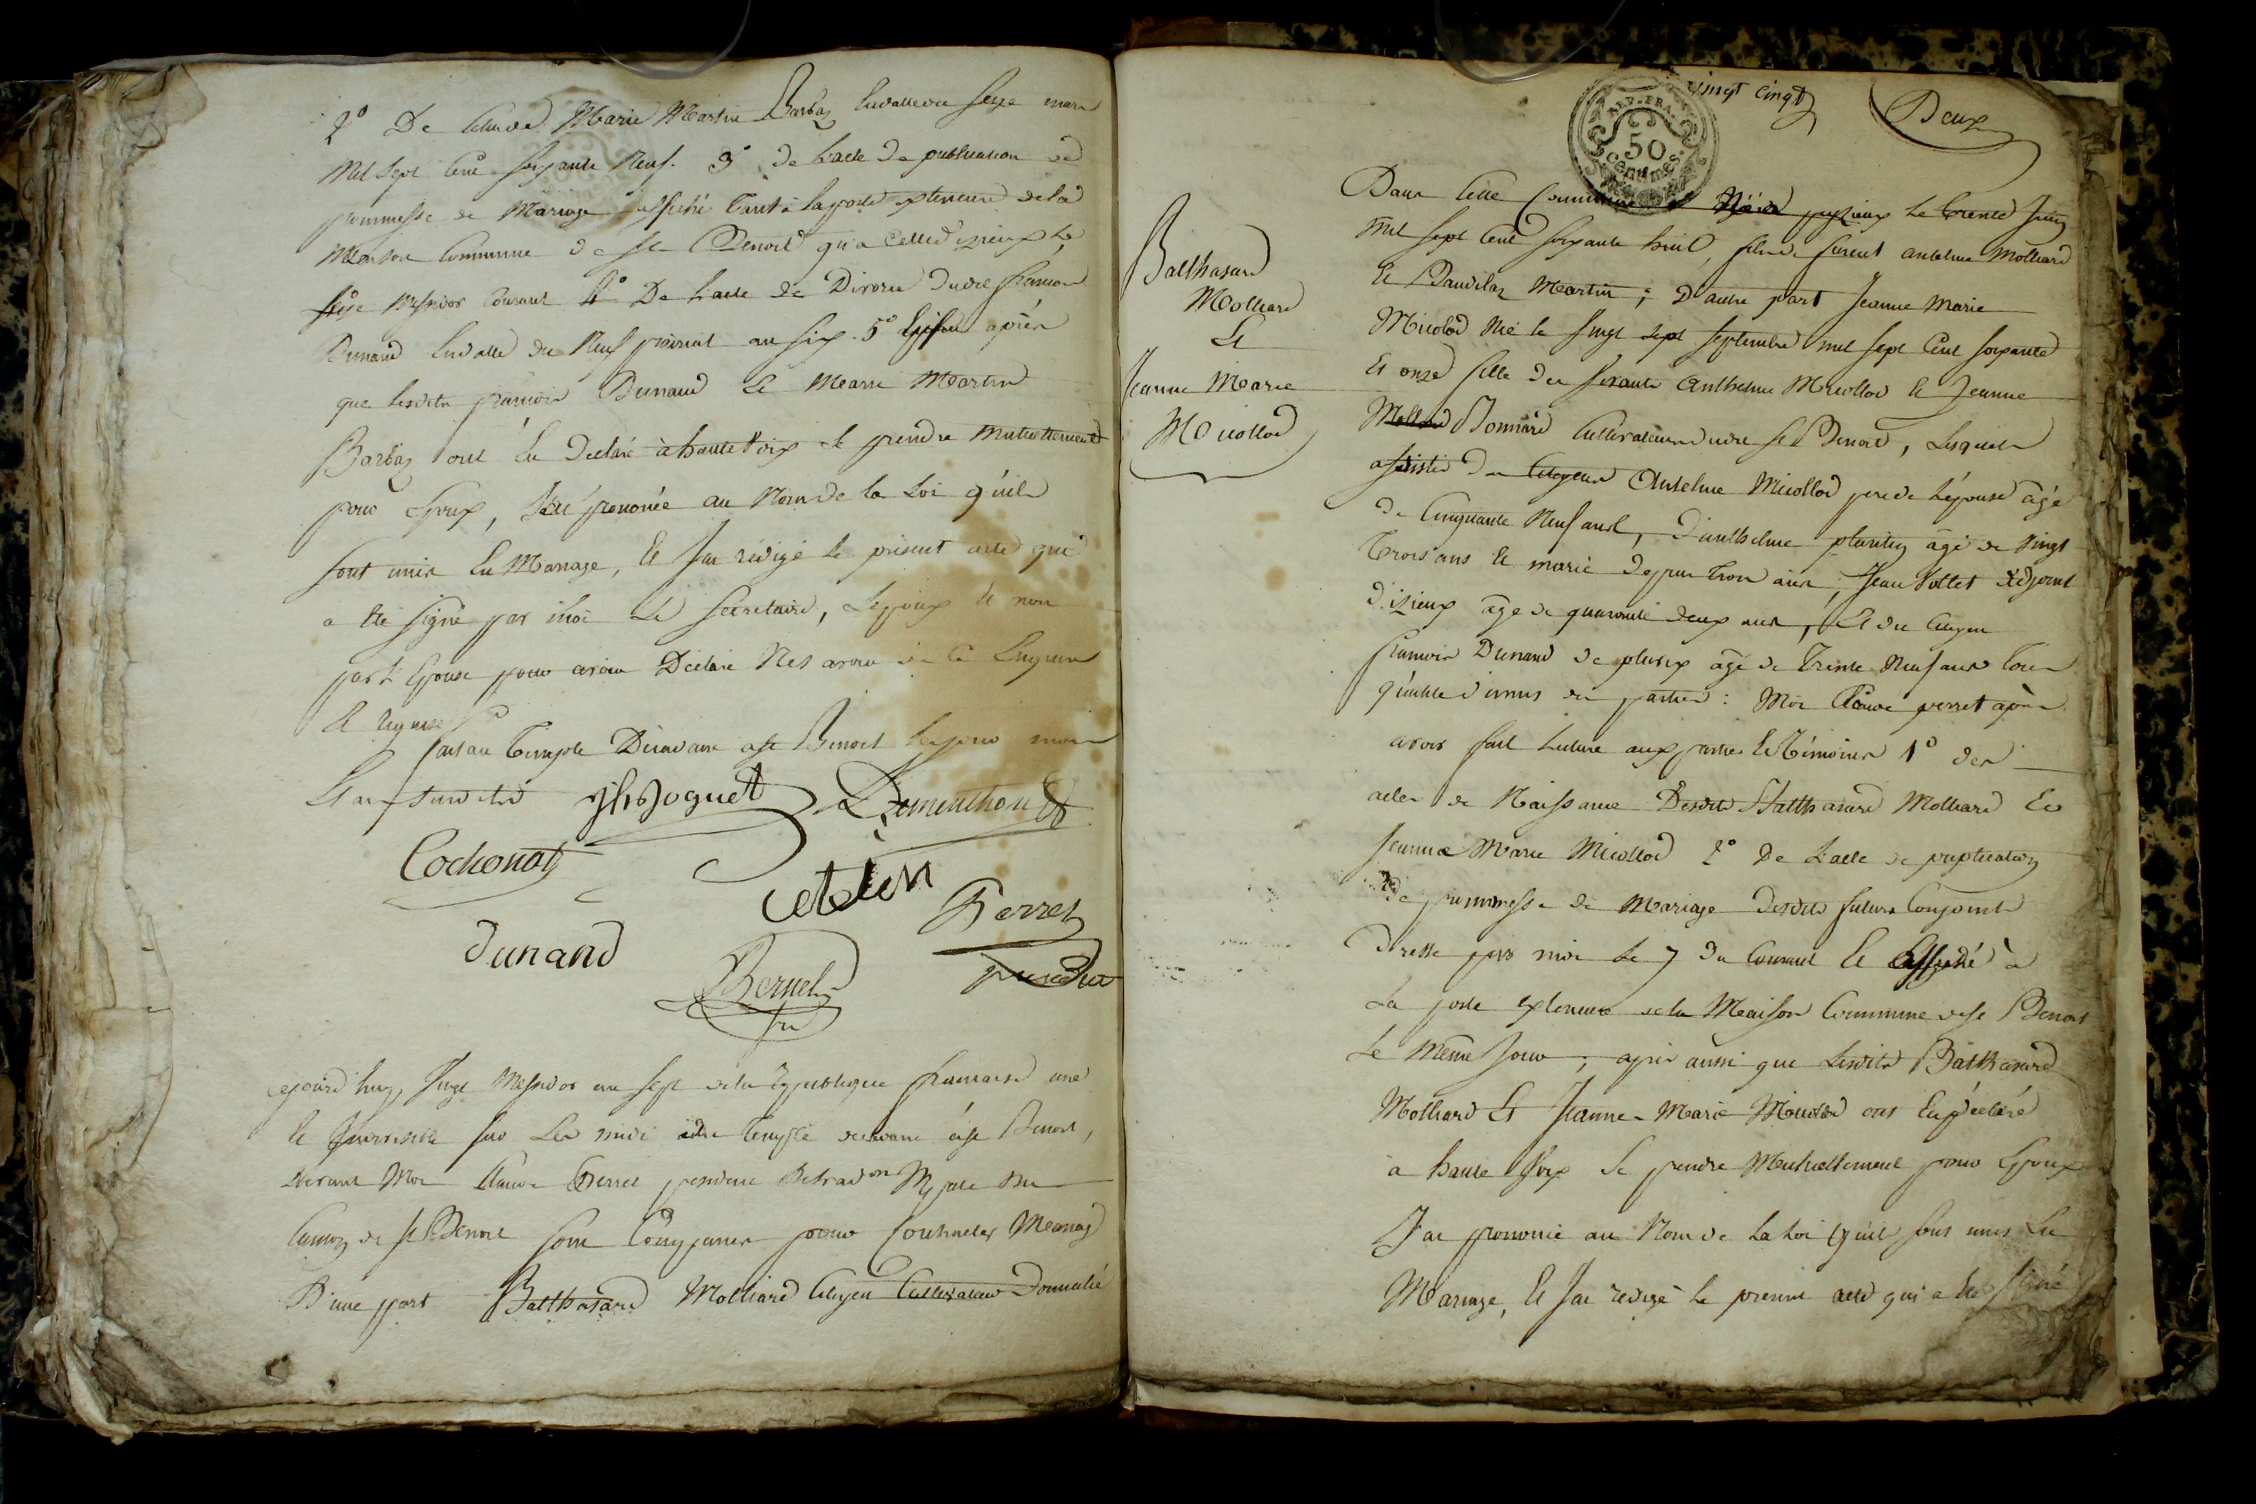 2° De Celuide Marie Martin Barbaz En datte du seize mars
Mil sept Cent soixante Neuf. 3° de l'acte de publication de
prommesse de Mariage affiché tant à la porte exterieure de la
Maison Commune de St Benoit qu'a Celle d'izieux le
seize Messidor Courant 4° De l'acte de Divorce dudit françois
Dunand En datte du Neuf prairial an six. 5° Enfin après
que lesdits françois Dunand Et Marie Martin
Barbaz ont Eu Declaré à haute Voix se prendre Mutuellement
pour Epoux, J'ai prononcé au Nom de la Loi qu'ils
sont unis En Mariage, Et J'ai rédigé le présent acte qui
a été signé par moi Le Secretaire, L'epoux Et non
par L'Epouse pour avoir Déclaré Ne savoir de Ce Enquise
Et requise
fait au Temple Décadaire a St Benoit les jour mois
Et an susdits jh Boguet Dementhon
Cochonat
Catelin
Perret
Dunand
Bernel
president
Cejourd'huy Vingt Messidor an sept de la République française une
Et Indivisible sur Les midi au Temple decadaire de St Benoit,
Devant Moi Claude Perret president De l'adon Mpale du
Canton de St Benoit sont Comparus pour Contracter Mariage
D'une part Balthasard Molliard Citoyen Cultivateur Domicilié
vingt cinq
Deux
ALP. FRA.
50
centimes.
Balthasard
Molliard
Et
Jeanne Marie
Micollod
Dans Cette Commune Né à pugieux le trente Juin
Mil sept Cent soixante huit, fils de furent anselme Molliard
Et Claudilaz Martin; D'autre part Jeanne Marie
Micolod Né le vingt sept septembre mil sept Cent soixante
Et onze fille des vivants Anthelme Micollod Et Jeanne
Bonnard Cultivateurs dudit St Benoit, Lesquels
assistés des Citoyens Anselme Micollod pere de L'épouse âgé
de Cinquante Neuf ans, d'anthelme plantin agé de Vingt
Trois ans Et marié depuis trois ans; Jean Vottet adjoint
d'izieux âgé de quarante deux ans, Et du Citoyen
françois Dunand de agé de Trente Neuf ans tous
parties: Moi Claude perret après
avoir fait Lecture aux parties Et Témoins 1° des
actes de Naissance Desdits Balthasard Molliard Et
Jeanne Marie Micollod 2° De L'acte de publication
de prommesse de Mariage desdits futurs Conjoints
Dressé par moi Le 7 du Courant Et affiché à
La porte exterieure de la Maison Commune de St Benoit
Le Même Jour; après aussi que Lesdits Balthasard
Molliard Et Jeanne Marie Micollod ont Eu Déclaré
à haute Voix se prendre Mutuellement pour Epoux
J'ai prononcé au Nom de La Loi qu'ils sont unis En
Mariage, Et J'ai redigé le present acte qui a été signé